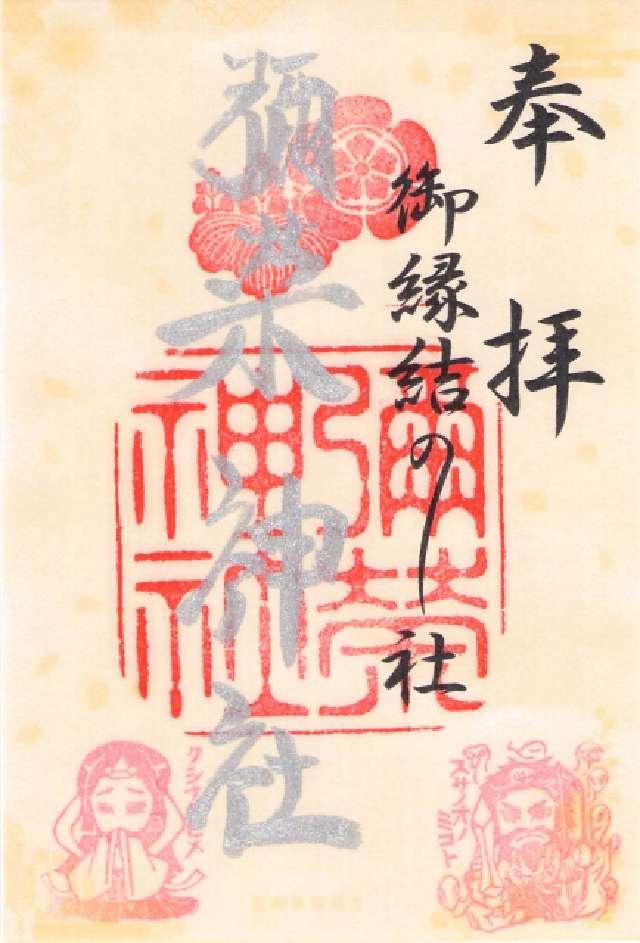 奉拝
御縁結の社
彌栄神社
彌榮神社
クシナダヒメ
スサノオノミコト